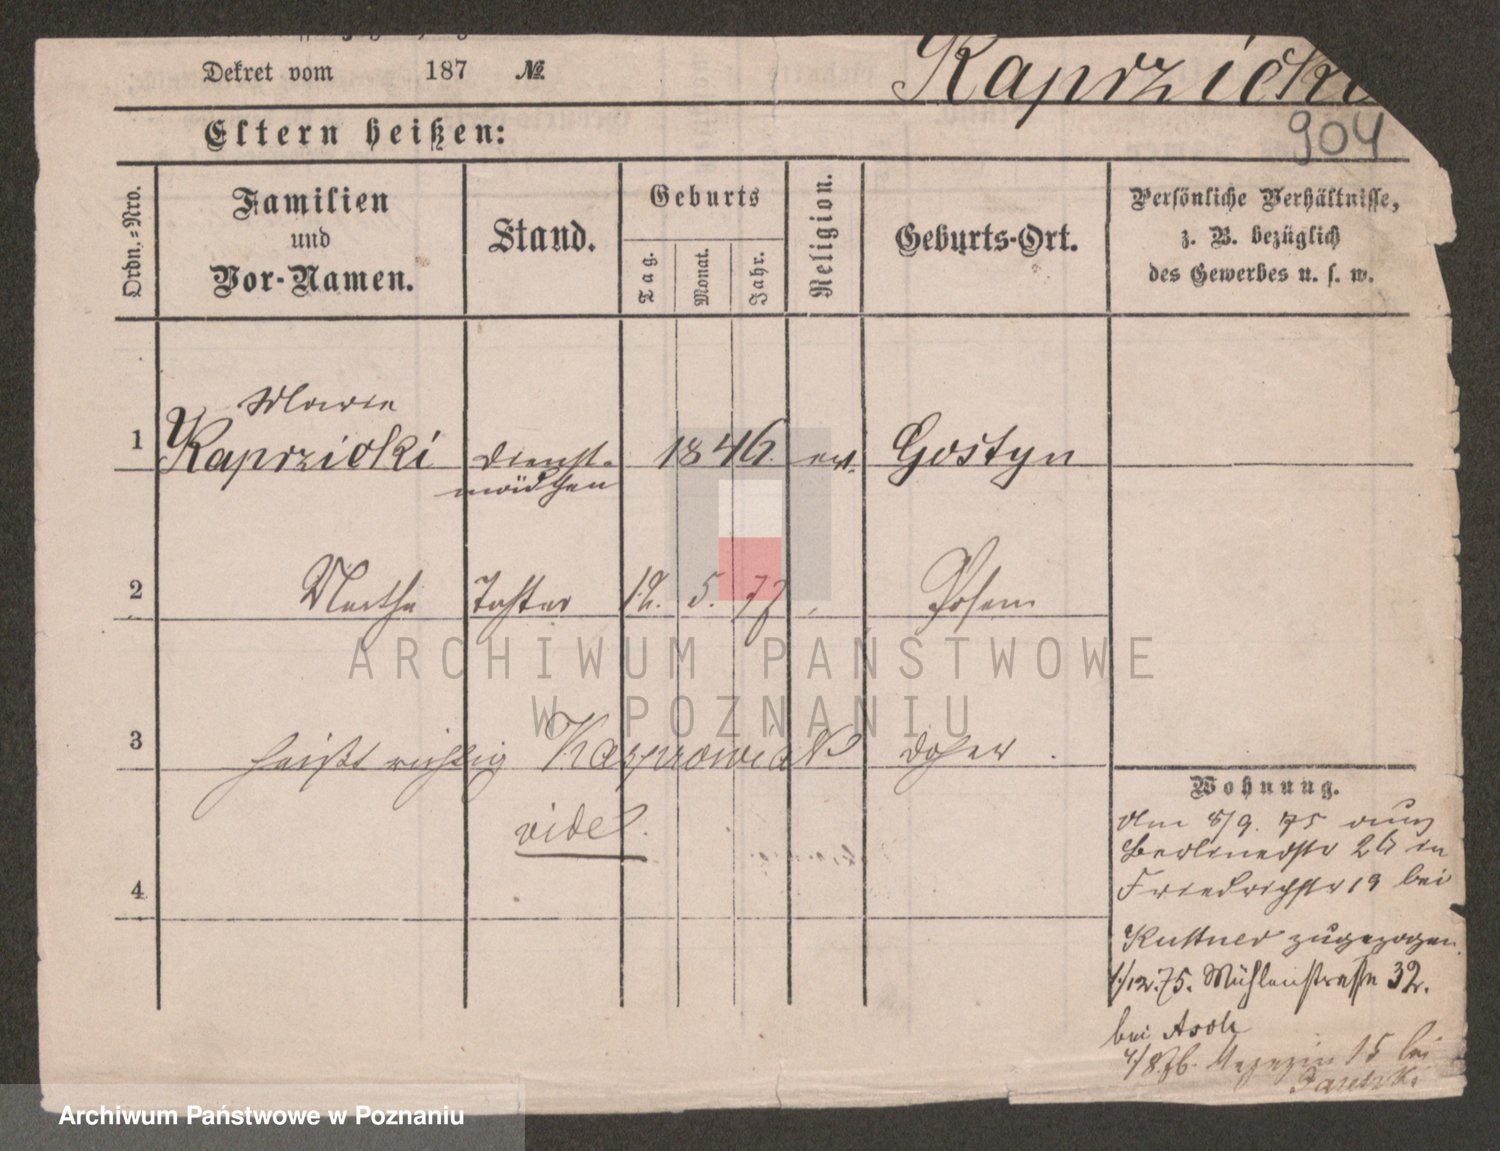 Dekret vom 187 №
Kaprzicki
904
Eltern heißen:
Ordn.-Nro.
Familien
und
Vor-Namen.
Stand.
Geburts
Tag.
Monat.
Jahr.
Religion.
Geburts-Ort.
Persönliche Verhältnisse,
z. B. bezüglich
des Gewerbes u. s. w.
Marie
1 Kaprzicki Dienst- 1846. ev. Gostyn
mädchen
2 Martha Tochter 12. 5. 77 Posen
ARCHIWUM PAŃSTWOWE
W POZNANIU
3 heißt richtig Kasprowiak daher
vide
4
Wohnung.
Am 8/9. 75 aus
Berlinerstr 26 in
Friedrichstr 19 bei
Kuttner zugezogen.
1/12.75. Mühlenstrasse 32.
bei Asch
Magazin 15 bei
Archiwum Państwowe w Poznaniu